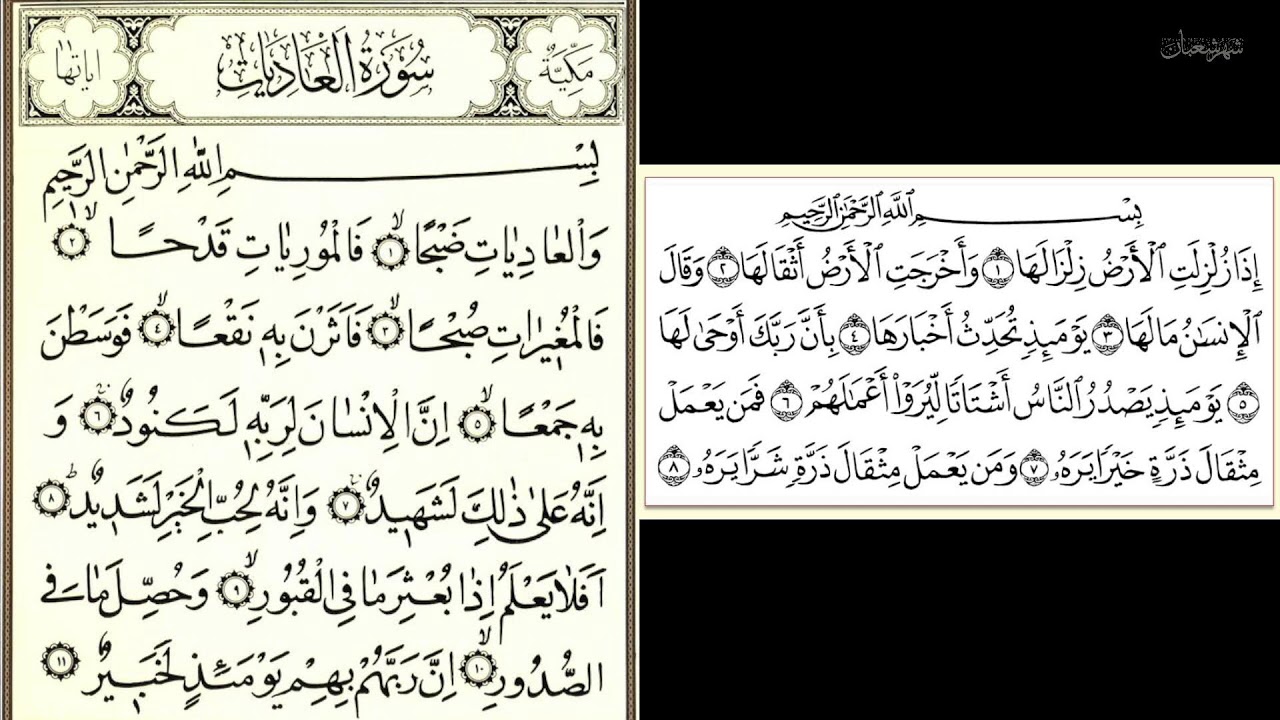 اياتها
سُورَةُ الْعَادِيَاتِ
مَكِّيَّةٌ
بِسْمِ اللّٰهِ الرَّحْمٰنِ الرَّحِيمِ
وَالْعَادِيَاتِ ضَبْحًاۙ ﴿١﴾ فَالْمُورِيَاتِ قَدْحًاۙ ﴿٢﴾
فَالْمُغ۪يرَاتِ صُبْحًاۙ ﴿٣﴾ فَاَثَرْنَ بِه۪ نَقْعًاۙ ﴿٤﴾ فَوَسَطْنَ
بِه۪ جَمْعًاۙ ﴿٥﴾ اِنَّ الْاِنْسَانَ لِرَبِّه۪ لَكَنُودٌ ﴿٦﴾ وَ
اِنَّهُ عَلٰى ذٰلِكَ لَشَه۪يدٌ ﴿٧﴾ وَاِنَّهُ لِحُبِّ الْخَيْرِ لَشَد۪يدٌۜ ﴿٨﴾
اَفَلَا يَعْلَمُ اِذَا بُعْثِرَ مَا فِي الْقُبُورِۙ ﴿٩﴾ وَحُصِّلَ مَا فِي
الصُّدُورِۙ ﴿١٠﴾ اِنَّ رَبَّهُمْ بِهِمْ يَوْمَئِذٍ لَخَب۪يرٌ ﴿١١﴾
شهر شعبان
بِسْمِ ٱللَّهِ ٱلرَّحْمَٰنِ ٱلرَّحِيمِ
إِذَا زُلْزِلَتِ ٱلْأَرْضُ زِلْزَالَهَا ﴿١﴾ وَأَخْرَجَتِ ٱلْأَرْضُ أَثْقَالَهَا ﴿٢﴾ وَقَالَ
ٱلْإِنسَٰنُ مَا لَهَا ﴿٣﴾ يَوْمَئِذٍ تُحَدِّثُ أَخْبَارَهَا ﴿٤﴾ بِأَنَّ رَبَّكَ أَوْحَىٰ لَهَا
﴿٥﴾ يَوْمَئِذٍ يَصْدُرُ ٱلنَّاسُ أَشْتَاتًا لِّيُرَوْا۟ أَعْمَٰلَهُمْ ﴿٦﴾ فَمَن يَعْمَلْ
مِثْقَالَ ذَرَّةٍ خَيْرًا يَرَهُۥ ﴿٧﴾ وَمَن يَعْمَلْ مِثْقَالَ ذَرَّةٍ شَرًّا يَرَهُۥ ﴿٨﴾